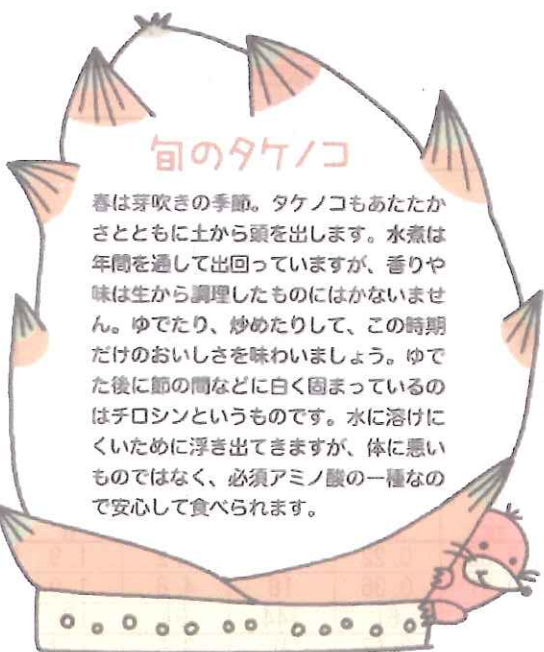 旬のタケノコ
春は芽吹きの季節。タケノコもあたたか
さとともに土から頭を出します。水煮は
年間を通して出回っていますが、香りや
味は生から調理したものにはかないませ
ん。ゆでたり、炒めたりして、この時期
だけのおいしさを味わいましょう。ゆで
た後に節の間などに白く固まっているの
はチロシンというものです。水に溶けに
くいために浮き出てきますが、体に悪い
ものではなく、必須アミノ酸の一種なの
で安心して食べられます。